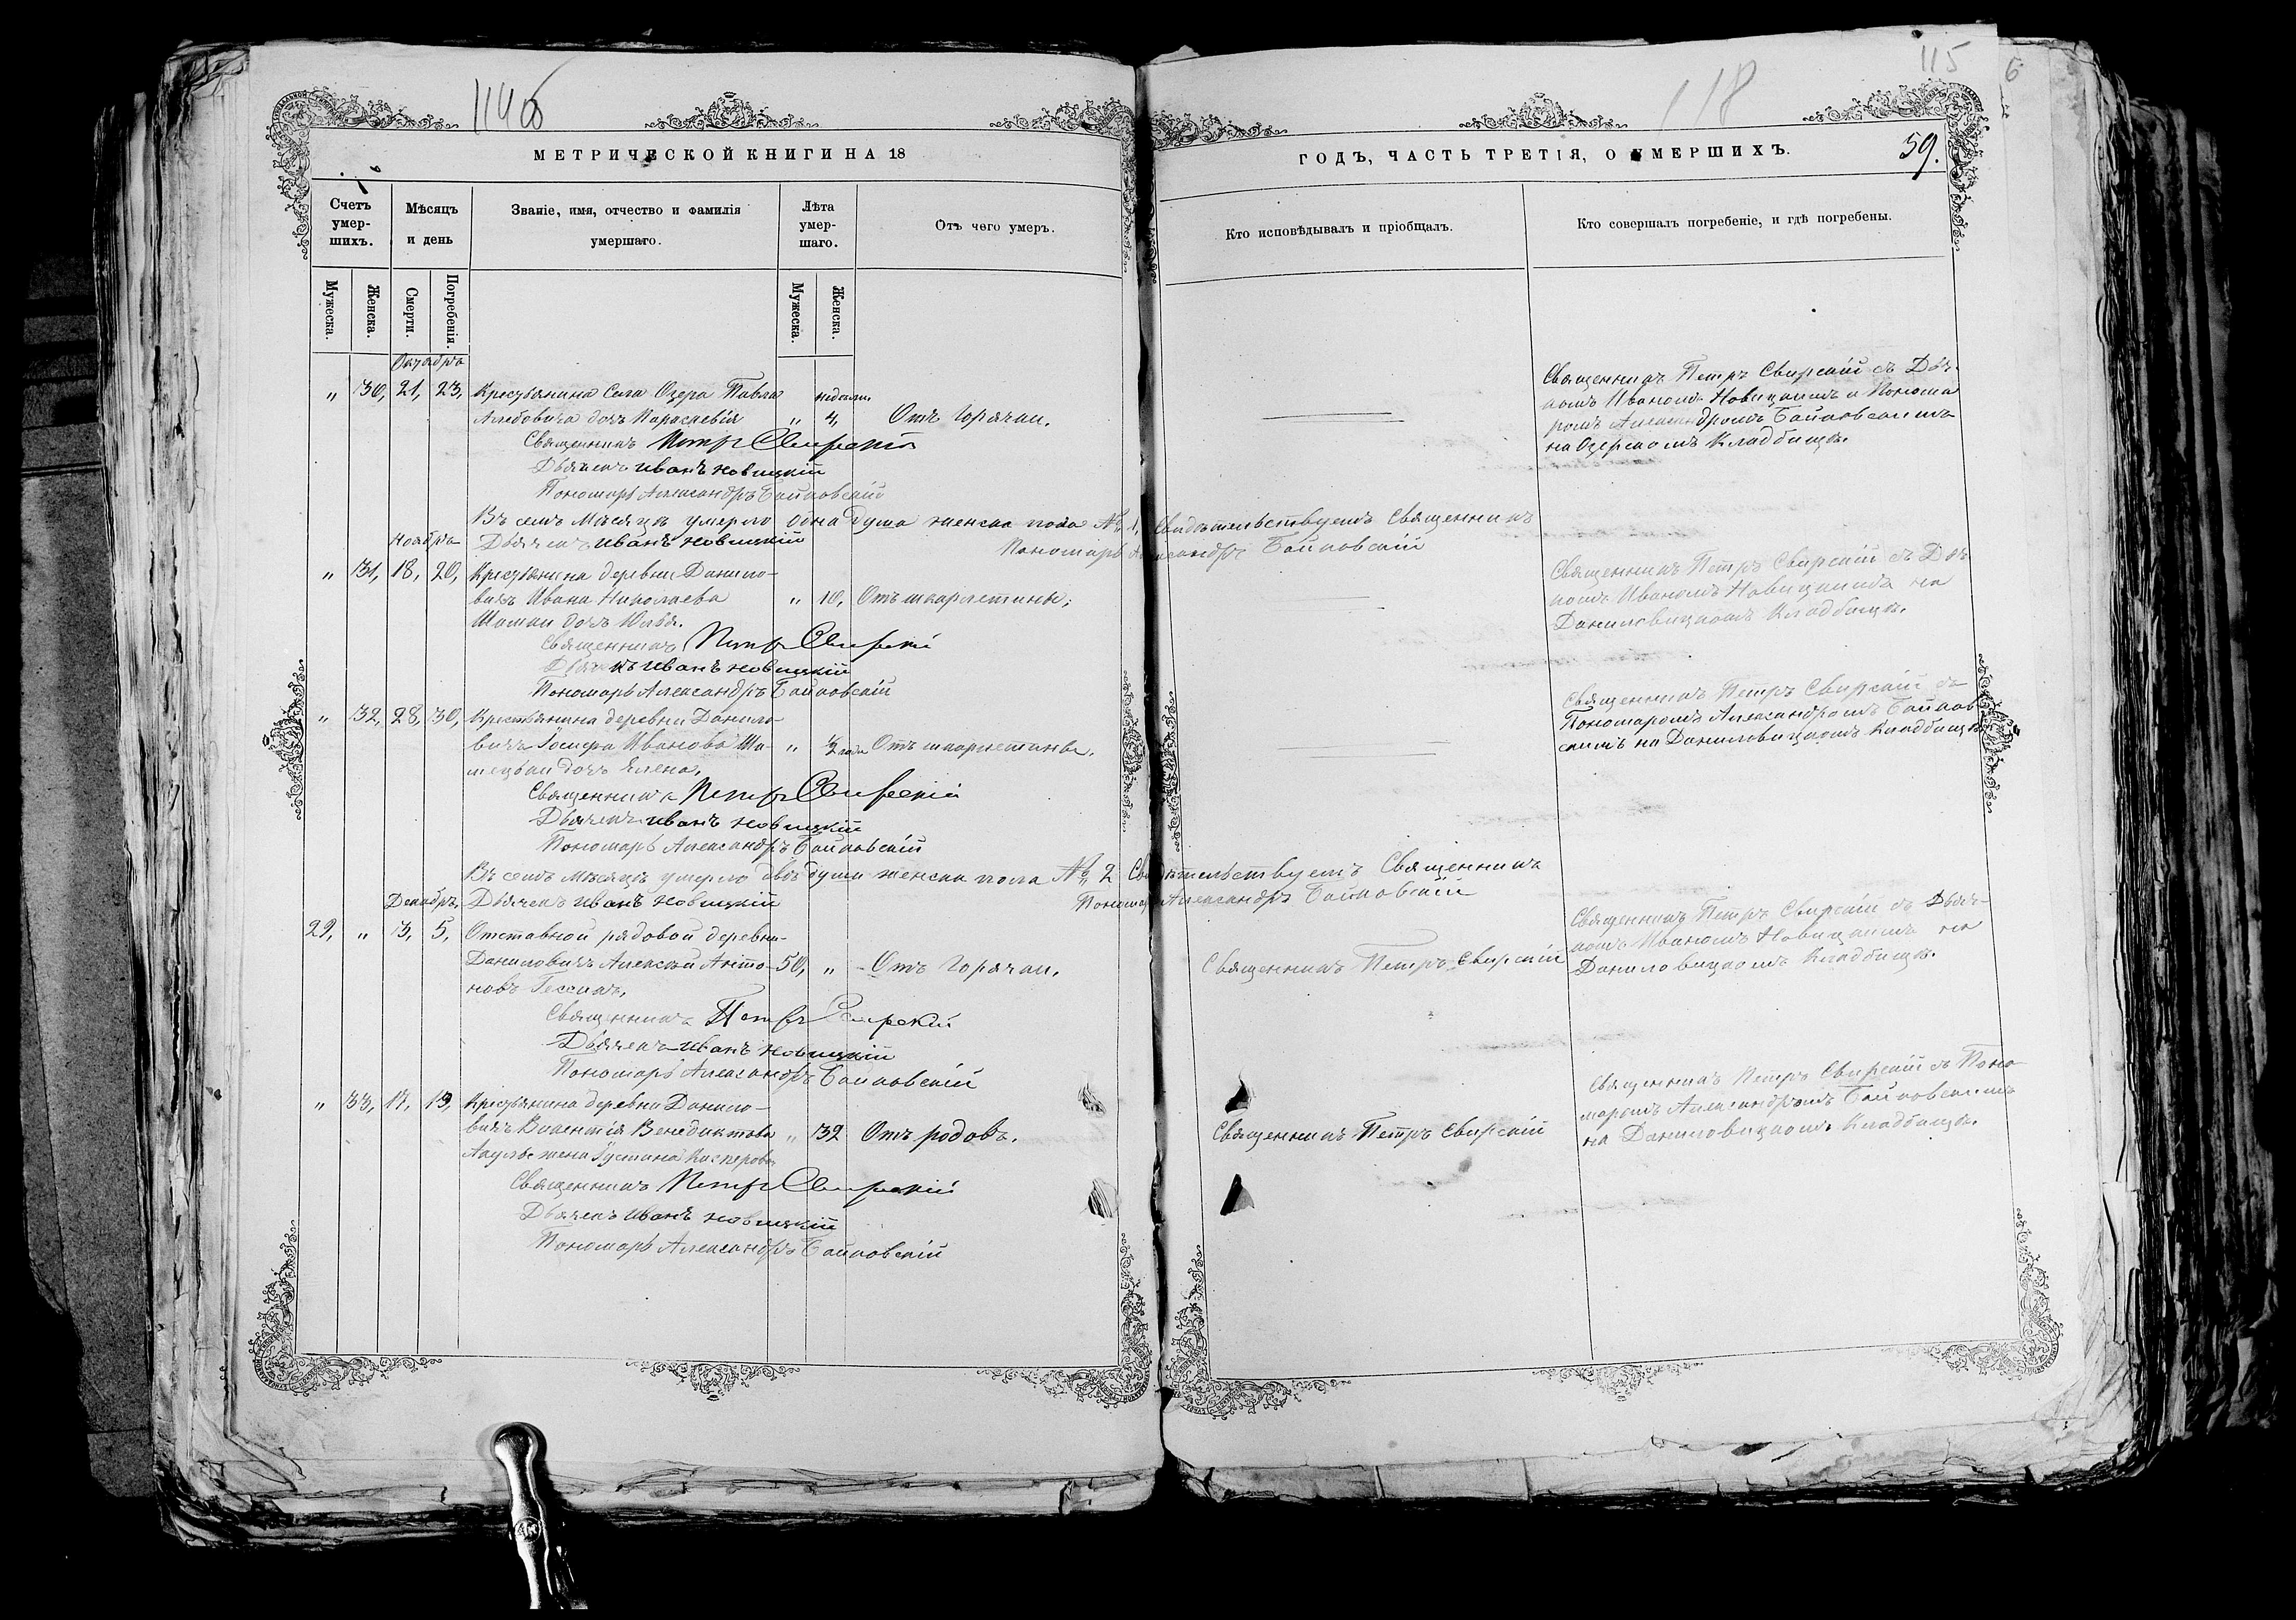 114об
118
115
59.
МЕТРИЧЕСКОЙ КНИГИ НА 18
ГОДЪ, ЧАСТЬ ТРЕТІЯ, О УМЕРШИХЪ.
Счетъ умер-шихъ.
Мѣсяцъ и день
Званіе, имя, отчество и фамилія умершаго.
Лѣта умер-шаго.
Отъ чего умеръ.
Кто исповѣдывалъ и пріобщалъ.
Кто совершалъ погребеніе, и гдѣ погребены.
Мужеска.
Женска.
Смерти.
Погребенія.
Мужеска.
Женска.
Октября
" 30, 21, 23, Крестьянина Села Озера Павла недели
дочь Параскевія " 4, Отъ Горячки.
Священникъ Петръ Свирскій
Дьячекъ Иванъ Новицкій
Пономарь Александръ Байковскій
Священникъ Петръ Свирскій съ Дья-
комъ Иваномъ Новицкимъ и Понома
ромъ Александромъ Байковскимъ
на Озерскомъ Кладбищѣ.
Въ семъ Мѣсяцѣ умерло одна душа женска пола № 1, Свидѣтельствуемъ Священникъ
Ноября Дьячекъ Иванъ Новицкій Пономарь Александръ Байковскій
" 31, 18, 20, Крестьянина деревни Данило-
вичъ Ивана Николаева " 10, Отъ шкарлетины;
дочь Юлія.
Священникъ Петръ Свирскій
Дьячекъ Иванъ Новицкій
Пономарь Александръ Байковскій
Священникъ Петръ Свирскій съ Дья
комъ Иваномъ Новицкимъ на
Даниловицкомъ Кладбищѣ.
" 32, 28, 30, Крестьянина деревни Данило-
вичъ Іосифа Иванова Ша- " ½ года Отъ шкарлетины.
дочь Елена,
Священникъ Петръ Свирскій
Дьячекъ Иванъ Новицкій
Пономарь Александръ Байковскій
Священникъ Петръ Свирскій съ
Пономаромъ Александромъ Байков
скимъ на Даниловицкомъ Кладбищѣ
Въ семъ мѣсяцѣ умерло двѣ души женска пола № 2 Свидѣтельствуемъ Священникъ
Декабрь, Дьячекъ Иванъ Новицкій Пономарь Александръ Байковскій
29, " 3, 5, Отставной рядовой деревни-
Даниловичъ Алексѣй Анто- 50, " Отъ Горячки. Священникъ Петръ Свирскій
новъ
Священникъ Петръ Свирскій
Дьячекъ Иванъ Новицкій
Пономарь Александръ Байковскій
Священникъ Петръ Свирскій съ Дьяч-
комъ Иваномъ Новицкимъ на
Даниловицкомъ Кладбищѣ.
" 33, Крестьянина деревни Данило-
вичъ Викентія Венедиктова " 32 Отъ родовъ. Священникъ Петръ Свирскій
жена Касперова
Священникъ Петръ Свирскій
Дьячекъ Иванъ Новицкій
Пономарь Александръ Байковскій
Священникъ Петръ Свирскій съ Поно
маромъ Александромъ Байковскимъ
на Даниловицкомъ Кладбищѣ.